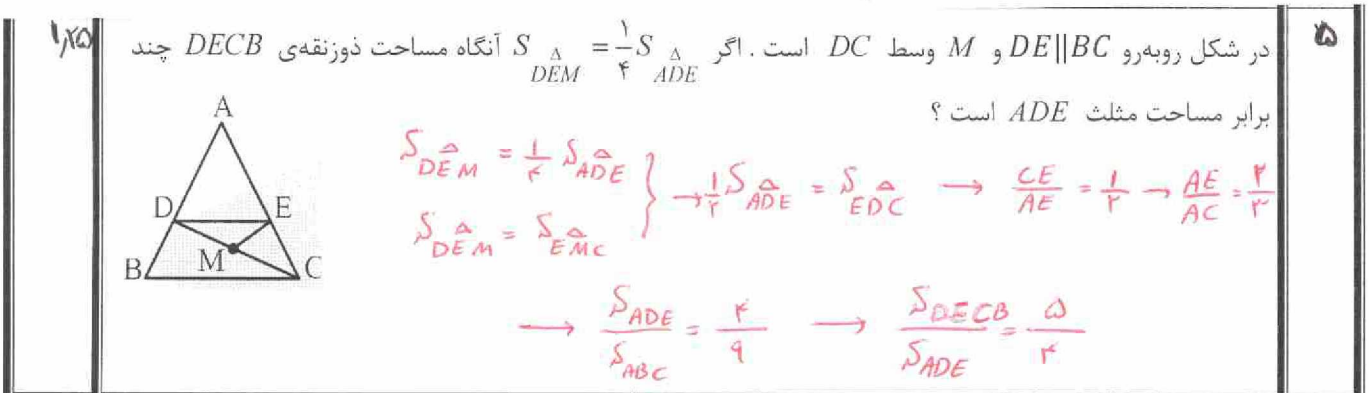 ۵
۱٫۲۵
در شکل روبه‌رو DE||BC و M وسط DC است . اگر S△DEM = ۱/۴ S△ADE آنگاه مساحت ذوزنقه‌ی DECB چند
برابر مساحت مثلث ADE است ؟
A
D E
M
B C
S△DEM = ۱/۴ S△ADE
S△DEM = S△EMC
} → ۱/۲ S△ADE = S△EDC → CE/AE = ۱/۲ → AE/AC = ۲/۳
→ S ADE / S ABC = ۴/۹ → S DECB / S ADE = ۵/۴